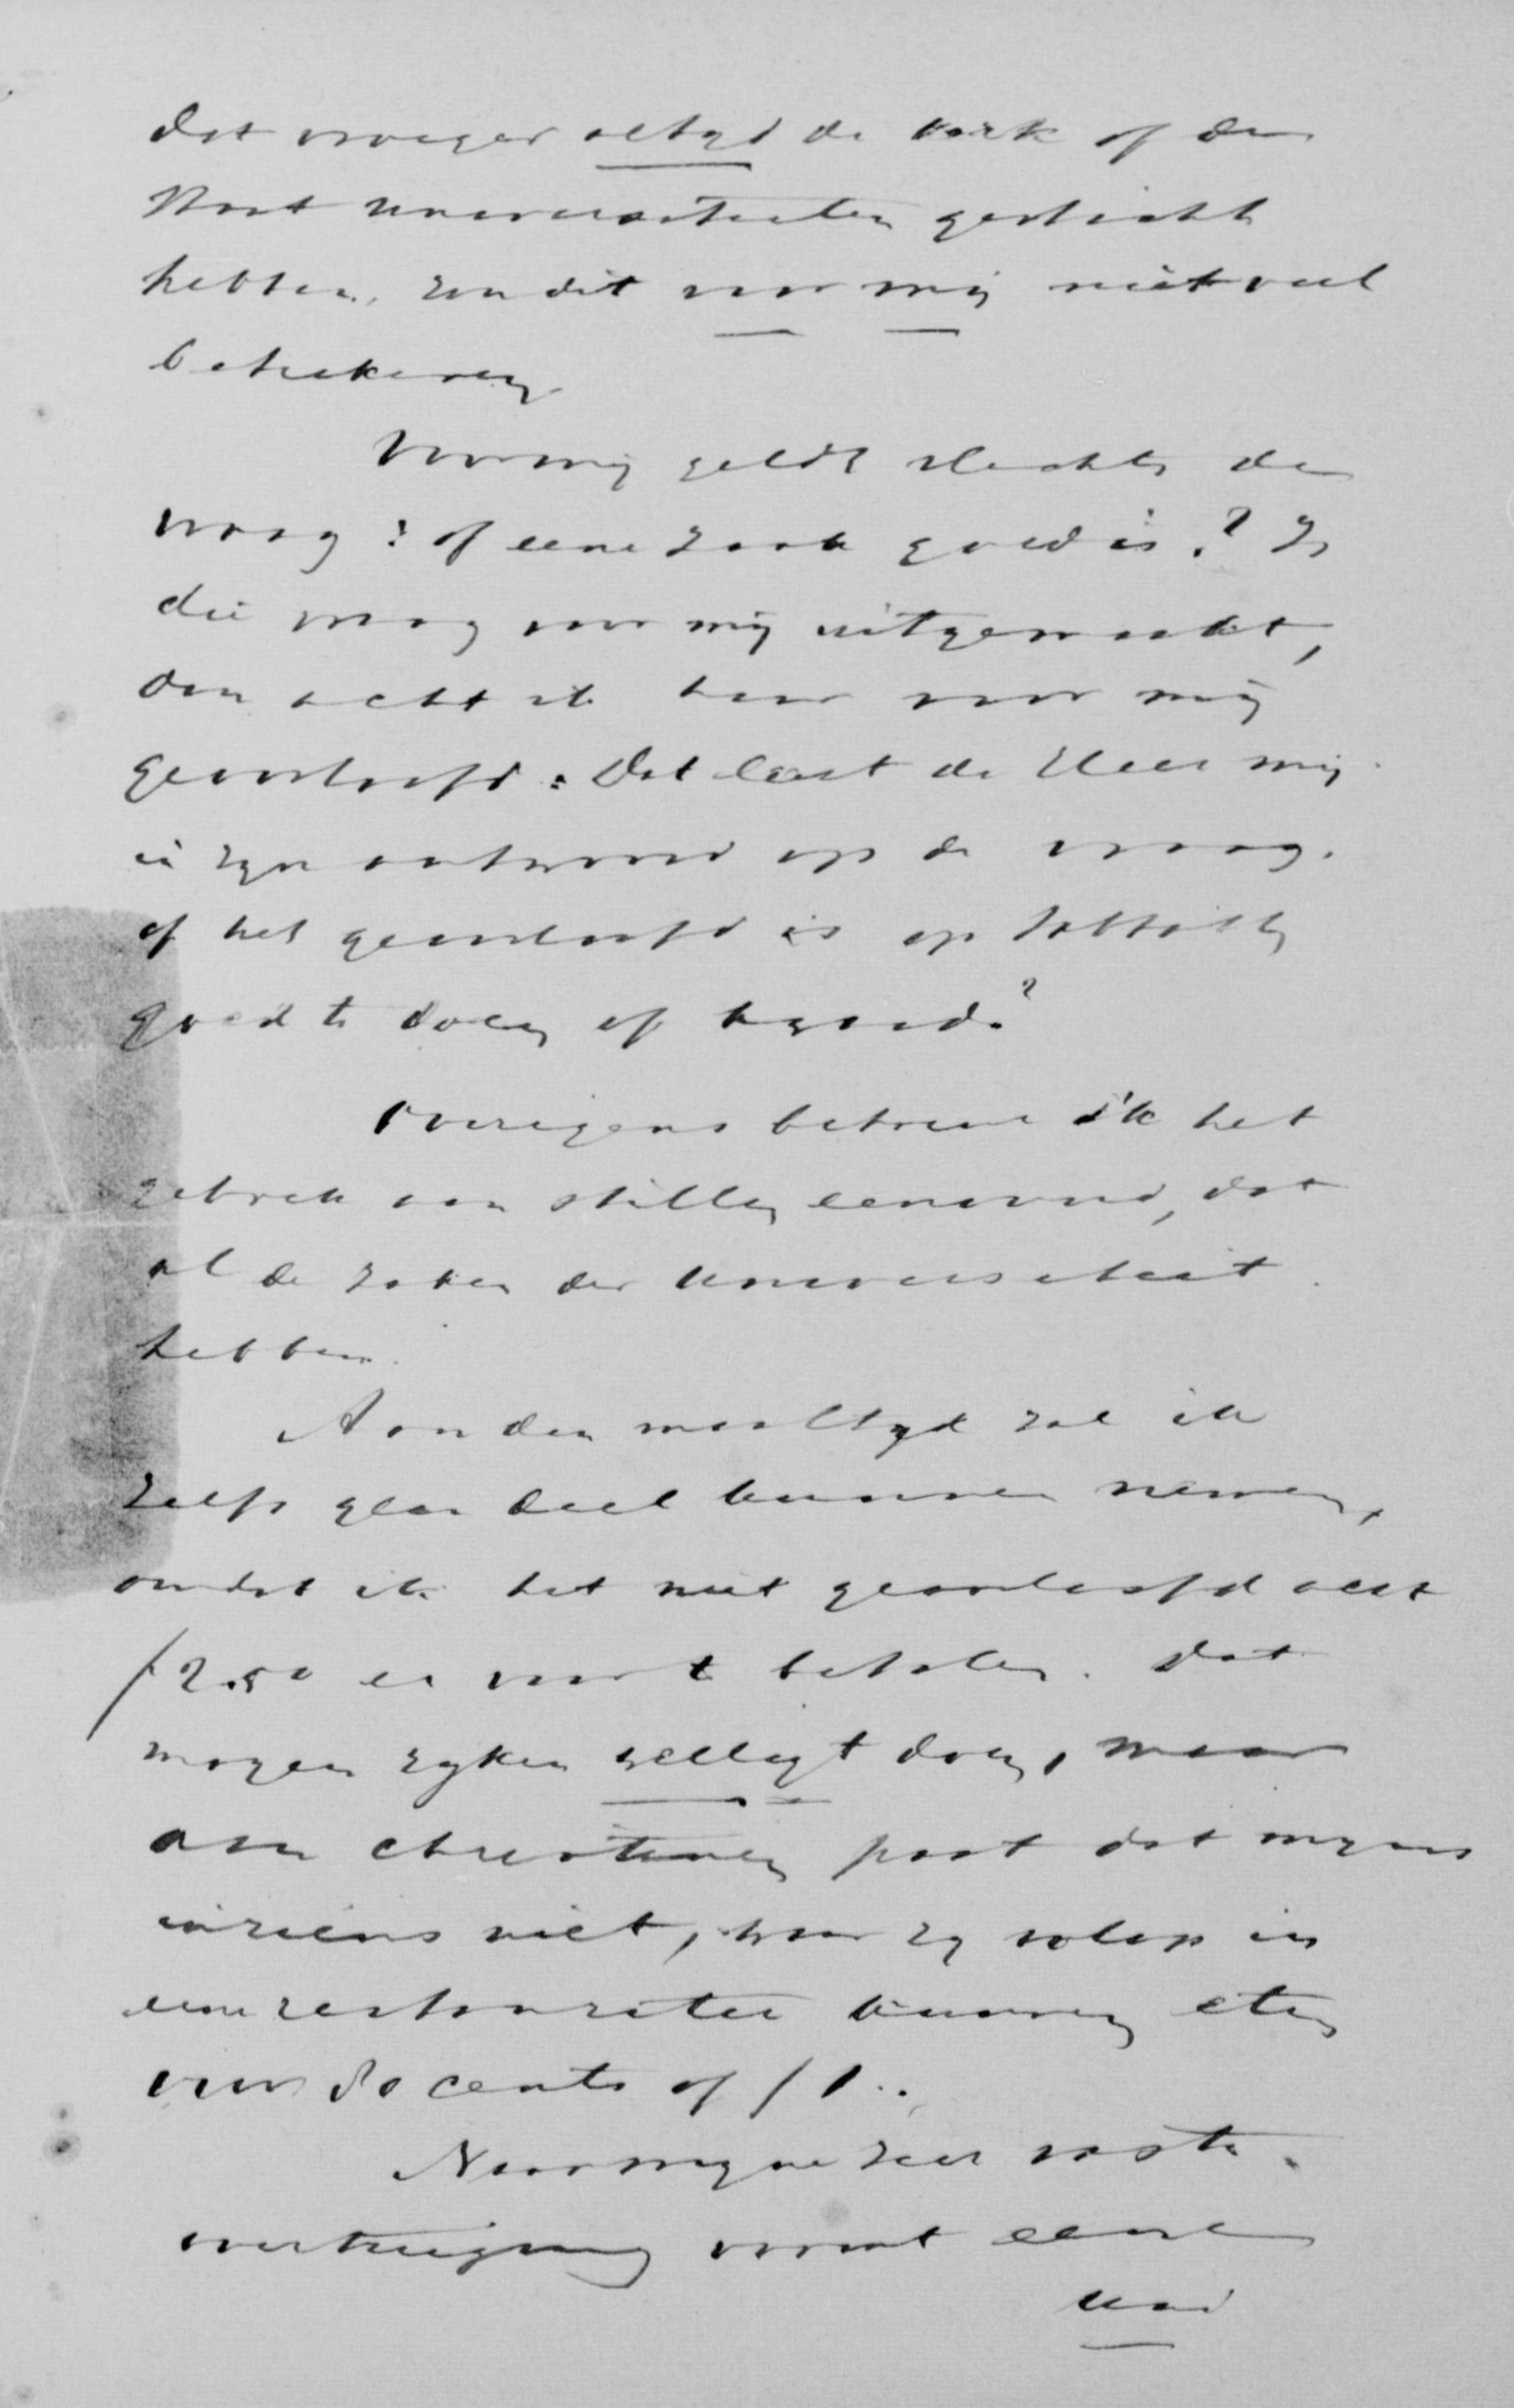 dat vroeger altyd de kerk of de
Staat universiteiten gesticht
hebben, zou dit voor mij niet veel
beteekenen.
Voor mij geldt slechts de
vraag: of eene zaak goed is? Is
die vraag voor mij uitgemaakt,
dan acht ik haar voor mij
geoorloofd: Dat leert de Heer mij
in zyn antwoord op de vraag.
of het geoorloofd is op sabbath
goed te doen of kwaad?
Overigens betreur ik het
gebrek aan stillen eenvoud, dat
al de zaken der Universiteit
hebben.
Aan den maaltyd zal ik
zelfs geen deel kunnen nemen,
omdat ik het niet geoorloofd acht
f 2.50 er voor te betalen. Dat
mogen ryken wellligt doen, maar
aan christenen past dat myns
inziens niet, daar zy volop in
eene restauratie kunnen eten
voor 80 cents of f 1.
Naar myne zeer vaste
overtuiging vormt eene